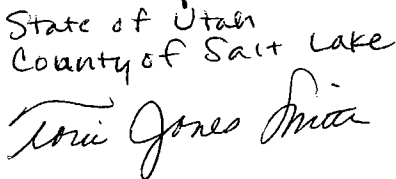 State of Utah
County of Salt Lake
Jones Smith